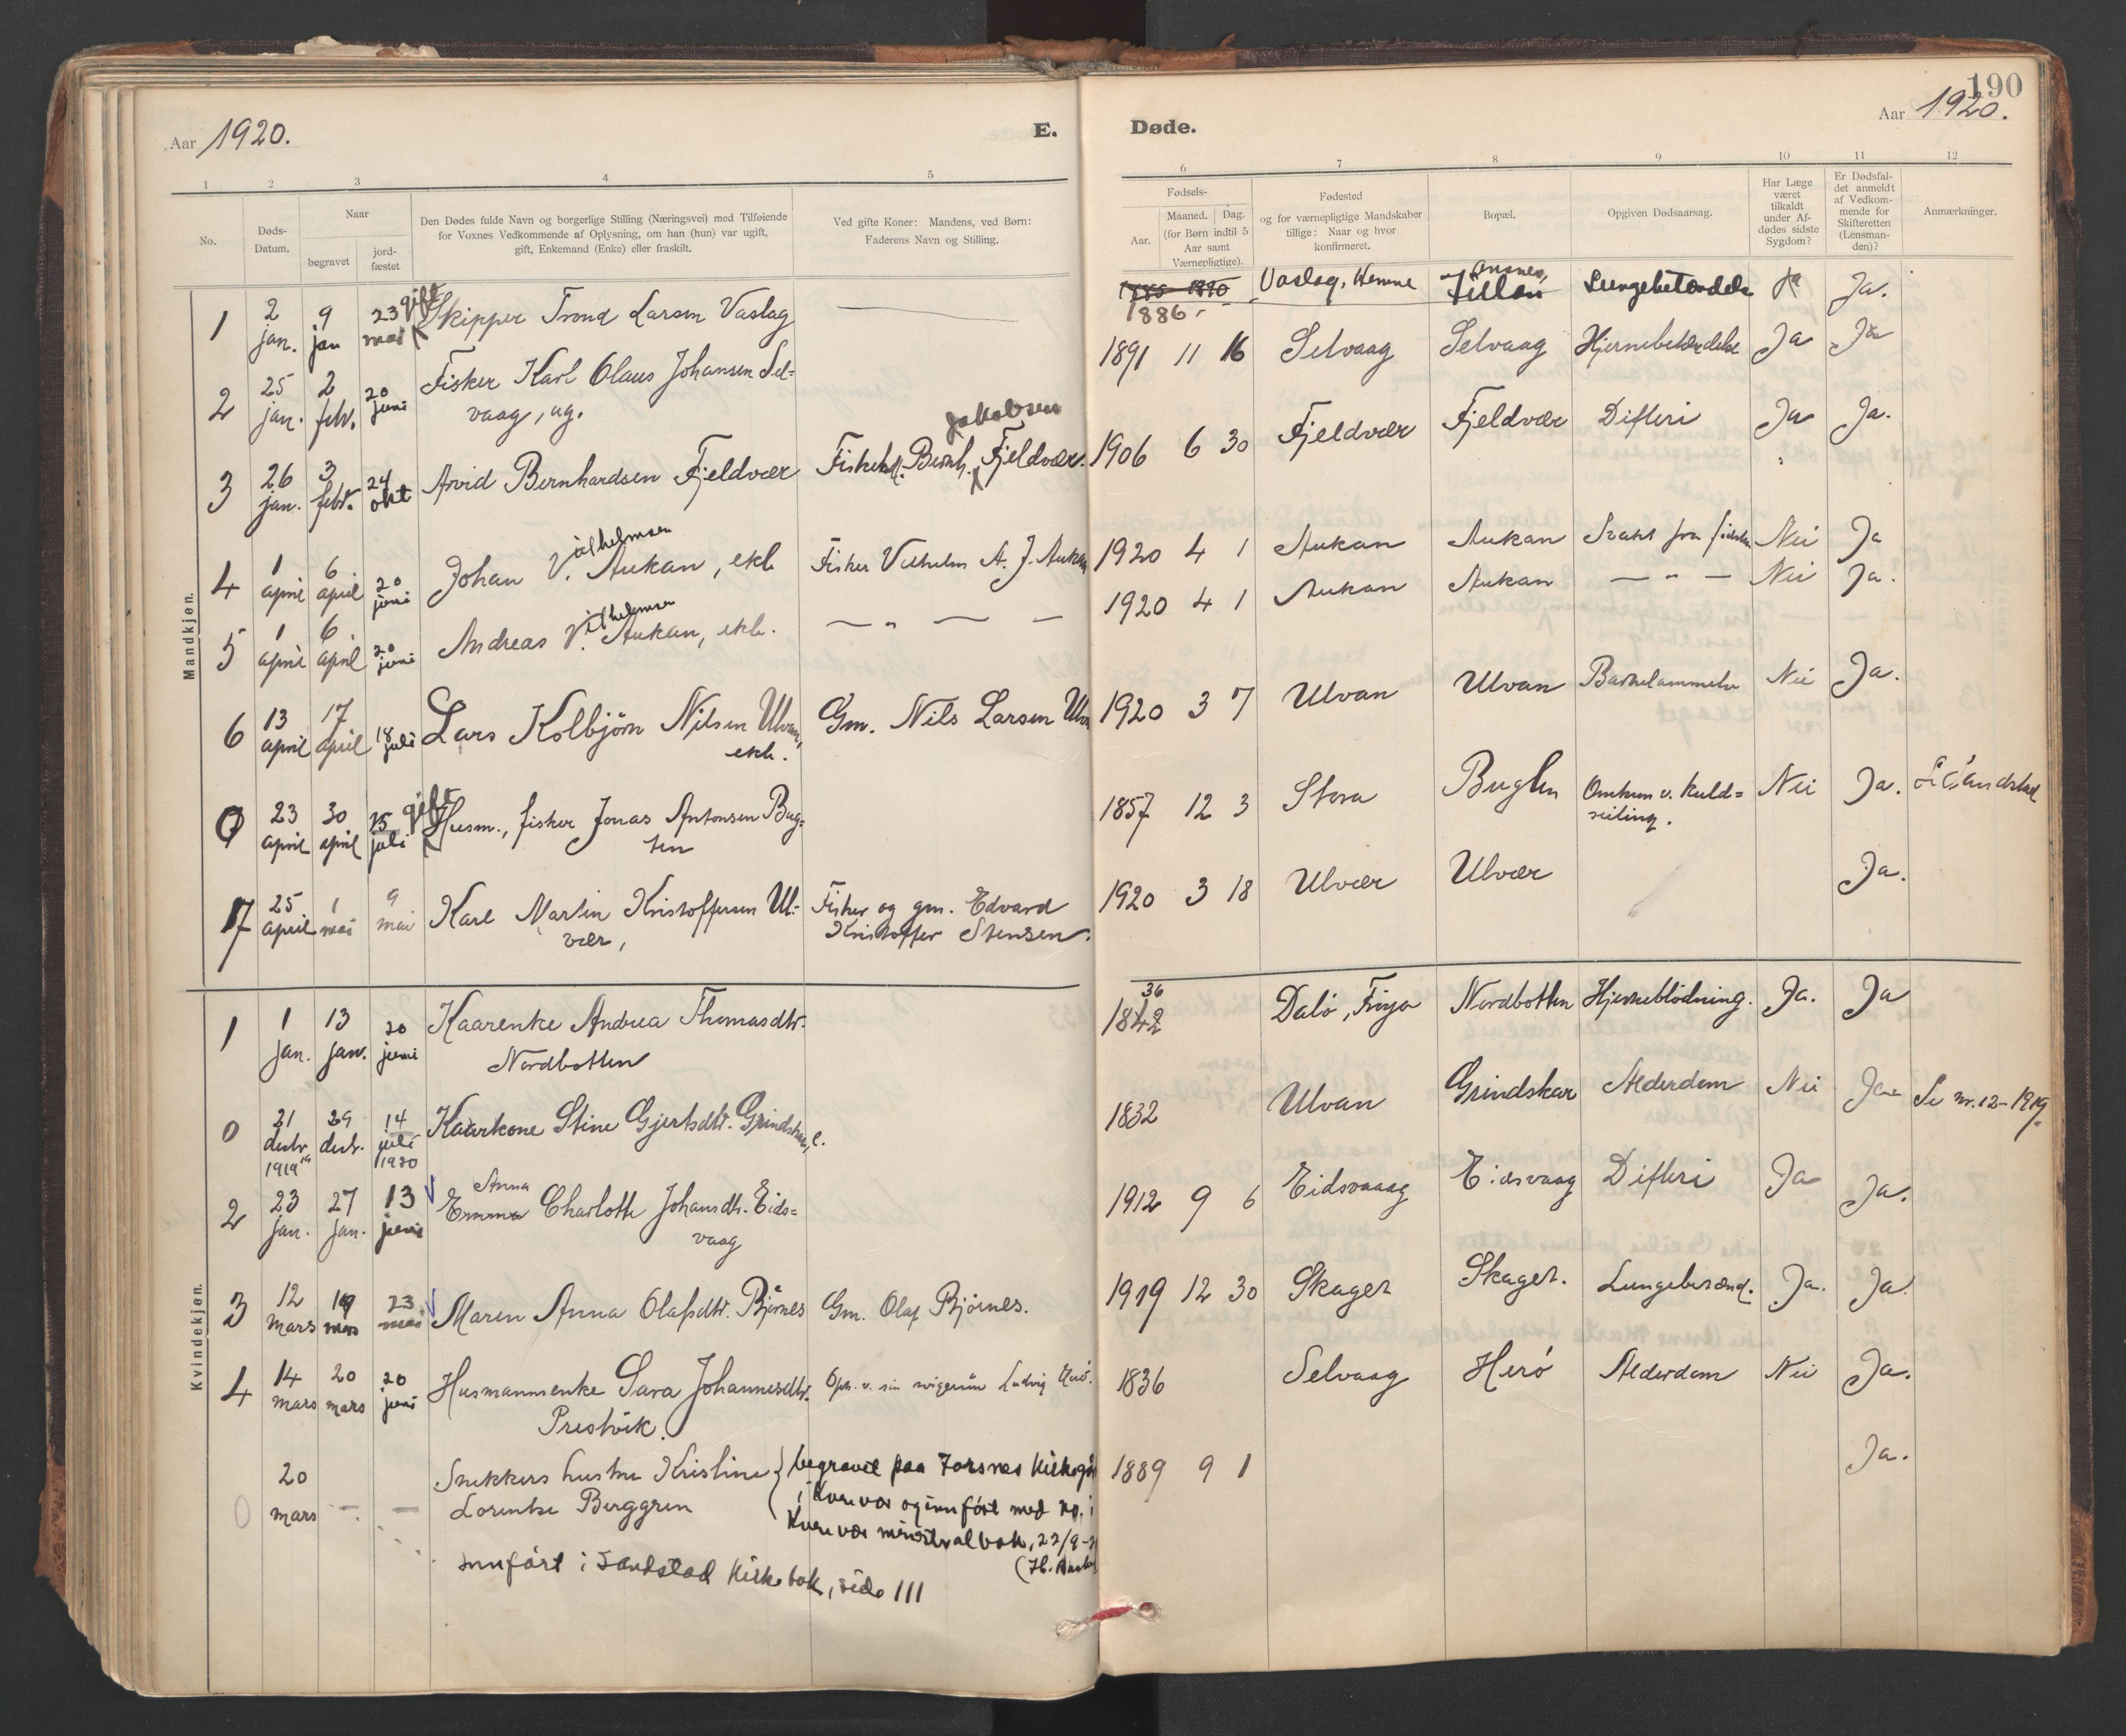 190
Aar 1920.
E.
Døde.
Aar 1920.
1 2 3 4 5 6 7 8 9 10 11 12
No.
Døds-
Datum.
Naar
begravet
jord-
fæstet
Den Dødes fulde Navn og borgerlige Stilling (Næringsvei) med Tilføiende
for Voxnes Vedkommende af Oplysning, om han (hun) var ugift,
gift, Enkemand (Enke) eller fraskilt.
Ved gifte Koner: Mandens, ved Børn:
Faderens Navn og Stilling.
Fødsels-
Aar.
Maaned. Dag.
(for Børn indtil 5
Aar samt
Værnepligtige).
Fødested
og for værnepligtige Mandskaber
tillige: Naar og hvor
konfirmeret.
Bopæl.
Opgiven Dødsaarsag.
Har Læge
været
tilkaldt
under Af-
dødes sidste
Sygdom?
Er Dødsfal-
det anmeldt
af Vedkom-
mende for
Skifteretten
(Lensman-
den)?
Anmærkninger.
Mandkjøn.
1 2 jan. 9 jan 23 mai gift Skipper Trond Larsen Vaslag 1886 Vaslag, Hemne Ansnes, Fillan Lungebetændelse Ja Ja.
2 25 jan. 2 febr. 20 juni Fisker Karl Olaus Johansen Sel- 1891 11 16 Selvaag Selvaag Hjernebetændelse Ja Ja
vaag, ug.
Jakobsen
3 26 jan. 3 febr. 24 okt Arvid Bernhardsen Fjeldvær Bernh. Fjeldvær. 1906 6 30 Fjeldvær Fjeldvær Difteri Ja Ja.
Vilhelmsen
4 1 april 6 april 20 juni Johan V. Aukan, ekt. Fisker Vilhelm A. J. Aukan 1920 4 1 Aukan Aukan Svakt fra fødselen Nei Ja
Vilhelmsen
5 1 april 6 april 20 juni Andreas V. Aukan, ekt. — " — — 1920 4 1 Aukan Aukan — " — Nei Ja.
6 13 april 17 april 18 juli Lars Kolbjörn Nilsen Ulvan, Gm. Nils Larsen Ulvan 1920 3 7 Ulvan Ulvan Nei Ja.
ekt.
0 23 april 30 april 25 juli gift Husm., fisker Jonas Antonsen Bug- 1857 12 3 Buglen Omkom v. kuld- Nei Ja.
ten seiling.
7 25 april 1 mai 9 mai Karl Martin Kristoffersen Ul- Fisker og gm. Edvard 1920 3 18 Ulvær Ulvær Ja.
vær, Kristoffer Stensen.
Kvindekjøn.
1 1 jan. 13 jan. 20 juni Kaarenke Andrea Thomasdtr. 1842 36 Dalö, Fröya Nordbotten Hjerneblödning. Ja. Ja
Nordbotten
0 21 decbr. 1919 29 decbr. 14 juli 1920 Kaarkone Stine Gjertsdtr. Grindskar, e. 1832 Ulvan Grindskar Alderdom Nei Ja Se nr. 12-1919.
Anna
2 23 jan. 27 jan. 13 juni Emma Charlotte Johansdtr. Eids- 1912 9 6 Eidsvaag Eidsvaag Difteri Ja Ja.
vaag
3 12 mars 19 mars 23 mai Maren Anna Olafsdtr. Bjørnes Gm. Olaf Bjørnes. 1919 12 30 Skaget Skaget. Lungebetænd. Ja. Ja
4 14 mars 20 mars 20 juni Husmannsenke Sara Johannesdtr. Oph. v. sin svigersön Ludvig 1836 Selvaag Herö Alderdom Nei Ja.
Prestvik.
0 20 mars — — Snekkers hustru Kristine begravet paa Forsnes Kirkegård 1889 9 1 Ja.
Lorentse Berggren i Kvenvær og innfört med no. i
Kvenvær ministerialbok, 22/9-
innfört i Sandstad Kirkebok, side 111